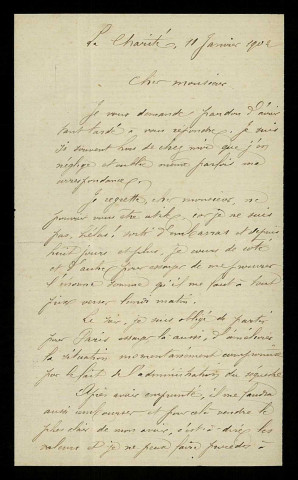 La Charité, 10 Janvier 1902
Cher monsieur
Je vous demande pardon d'avoir
tant tardé à vous répondre, je suis
si souvent hors de chez moi que j'en
néglige et oublie même parfois ma
correspondance.
Je regrette, cher monsieur, ne
pouvoir vous être utile, car je ne suis
pas, hélas! sorti d'embarras et depuis
huit jours et plus, je cours de côté
et d'autre pour essayer de me procurer
l'énorme somme qu'il me faut à tout
prix verser lundi matin.
Ce soir, je suis obligé de partir
pour Paris essayer là aussi, d'améliorer
la situation momentanément compromise
par le fait de l'administration du séquestre
Après avoir emprunté, il me faudra
aussi rembourser et pour cela vendre le
plus clair de mon avoir, c'est-à-dire les
valeurs et je ne peux faire procéder à